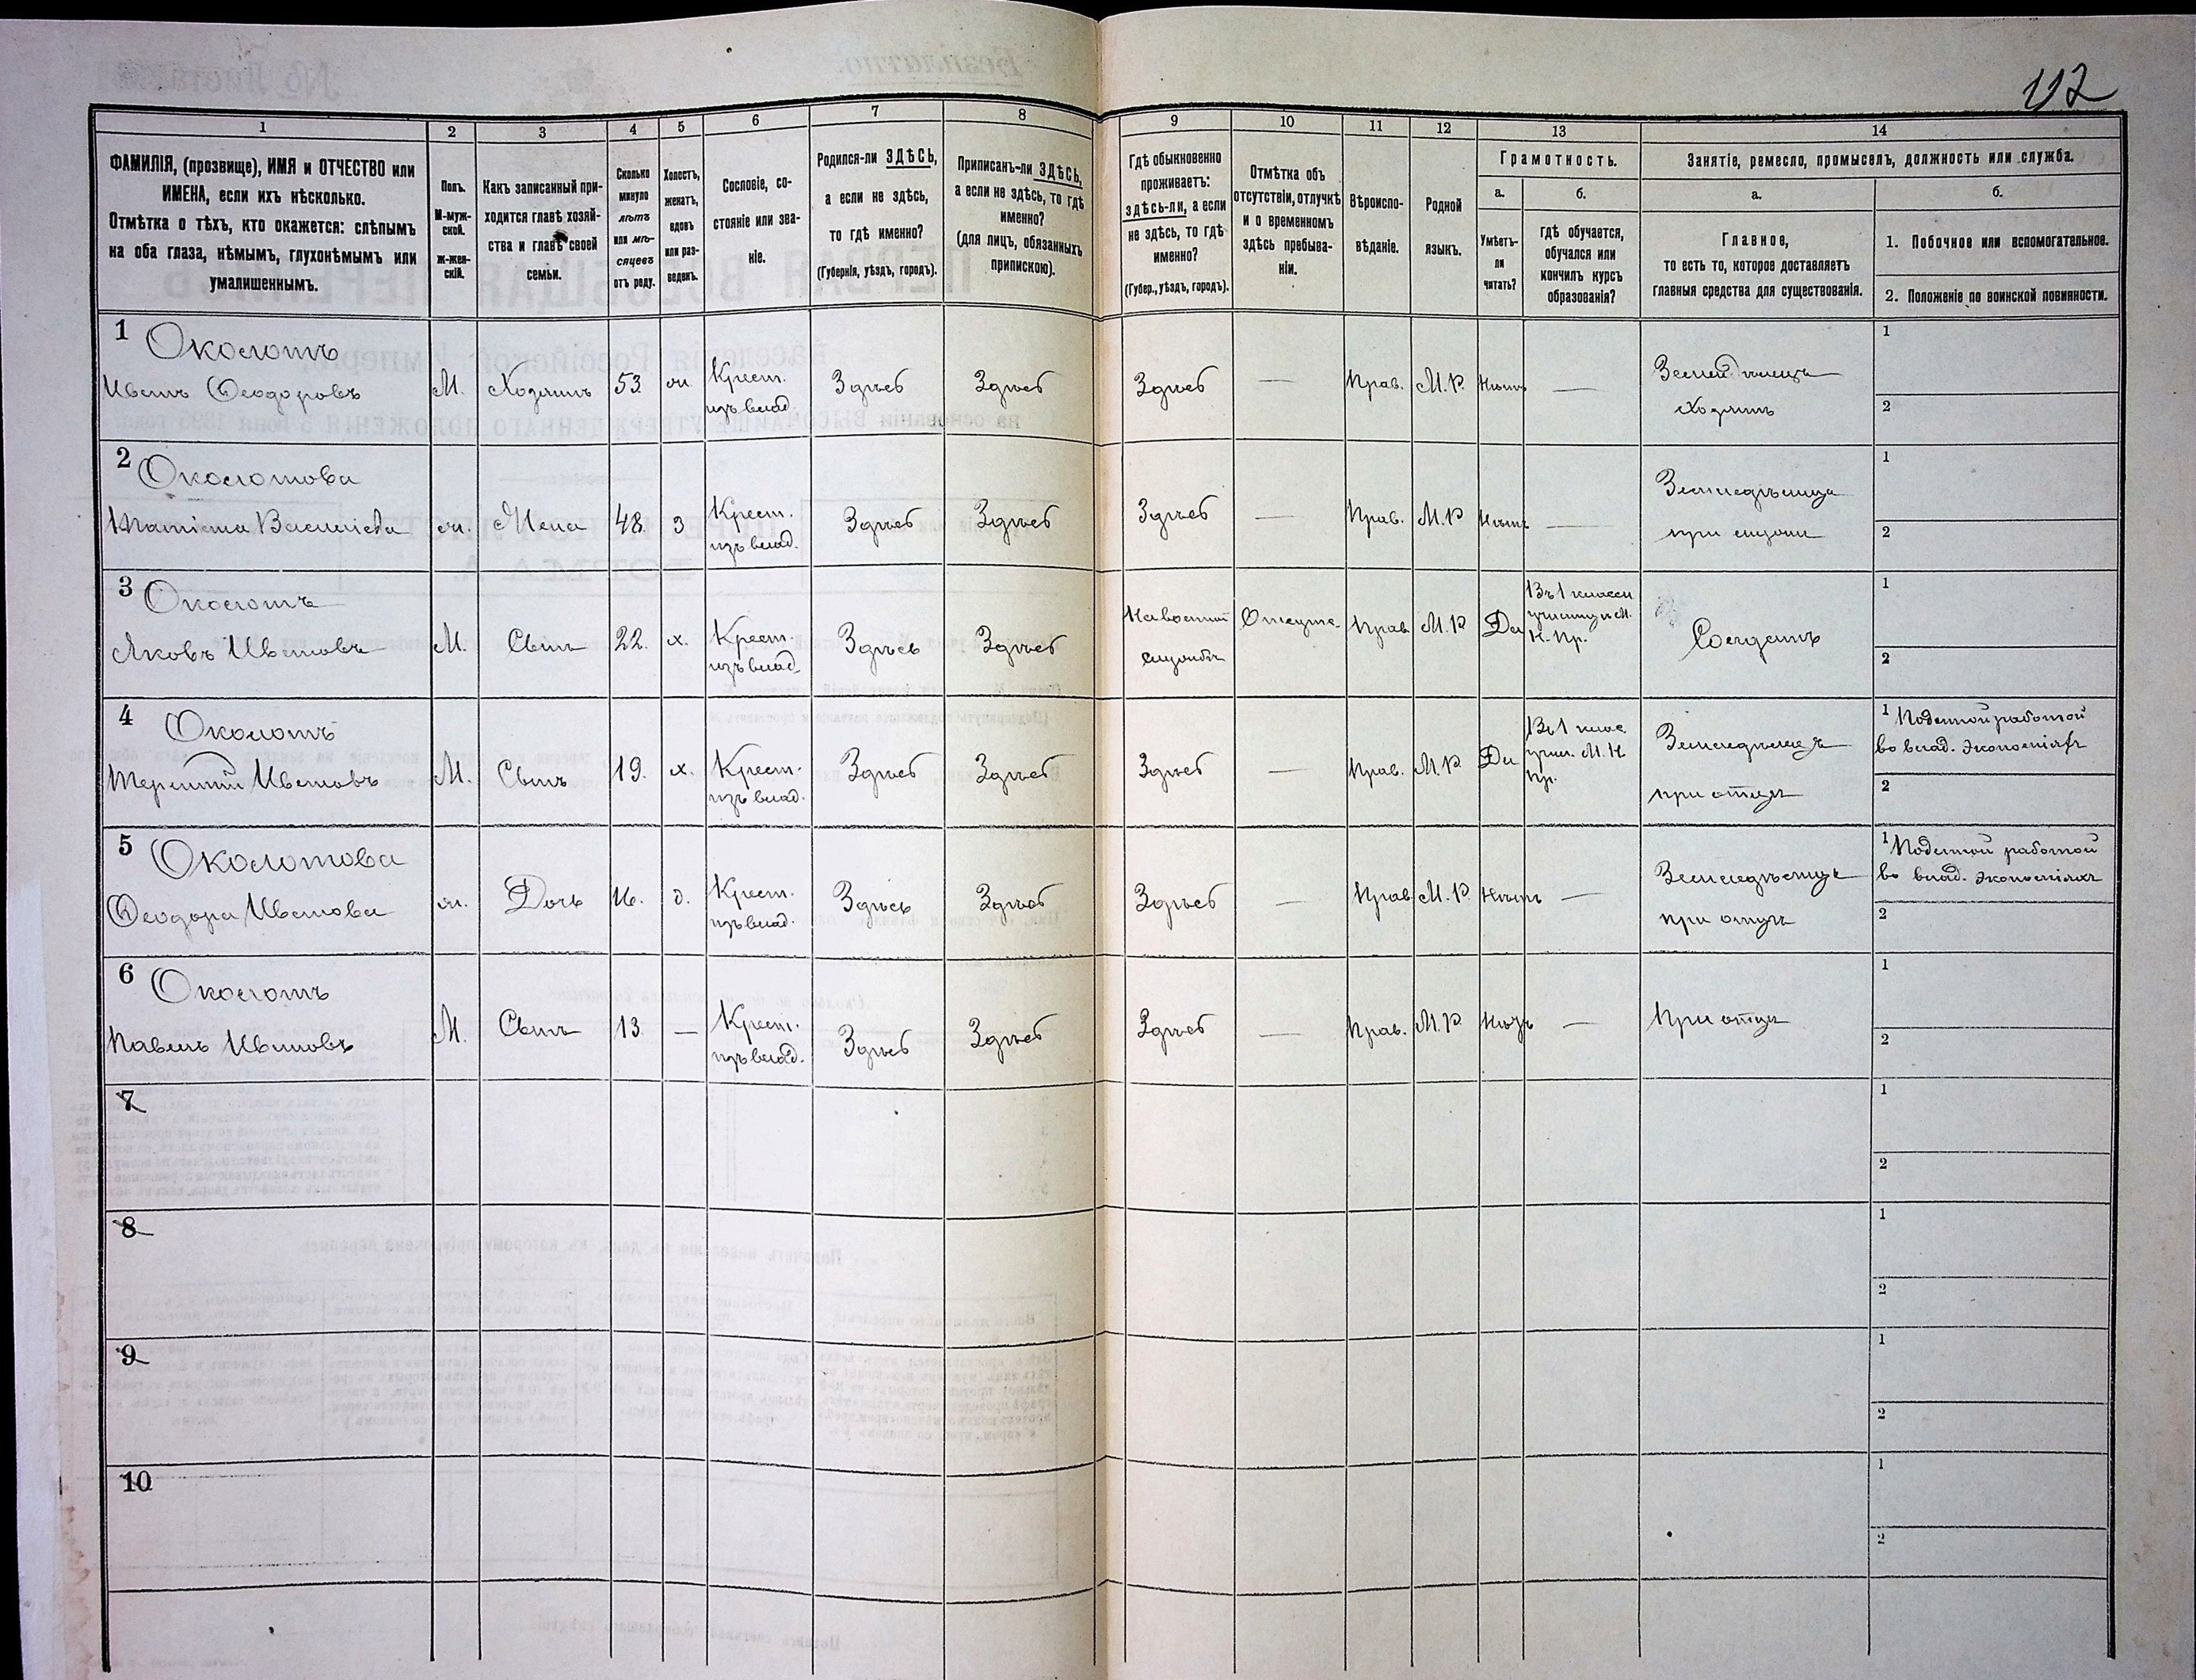 112
1
2
3
4
5
6
7
8
9
10
11
12
13
14
ФАМИЛІЯ, (прозвище), ИМЯ и ОТЧЕСТВО или
ИМЕНА, если ихъ нѣсколько.
Отмѣтка о тѣхъ, кто окажется: слѣпымъ
на оба глаза, нѣмымъ, глухонѣмымъ или
умалишеннымъ.
Полъ.
М-муж-
ской.
ж-жен-
скій.
Какъ записанный при-
ходится главѣ хозяй-
ства и главѣ своей
семьи.
Сколько
минуло
лѣтъ
или мѣ-
сяцевъ
отъ роду.
Холостъ,
женатъ,
вдовъ
или раз-
веденъ.
Сословіе, со-
стояніе или зва-
ніе.
Родился-ли ЗДѢСЬ,
а если не здѣсь,
то гдѣ именно?
(Губернія, уѣздъ, городъ).
Приписанъ-ли ЗДѢСЬ,
а если не здѣсь, то гдѣ
именно?
(для лицъ, обязанныхъ
припискою).
Гдѣ обыкновенно
проживаетъ:
здѣсь-ли, а если
не здѣсь, то гдѣ
именно?
(Губер., уѣздъ, городъ).
Отмѣтка объ
отсутствіи, отлучкѣ
и о временномъ
здѣсь пребыва-
ніи.
Вѣроиспо-
вѣданіе.
Родной
языкъ.
Грамотность.
а.
Умѣетъ-
ли
читать?
б.
гдѣ обучается,
обучался или
кончилъ курсъ
образованія?
Занятіе, ремесло, промыселъ, должность или служба.
а.
Главное,
то есть то, которое доставляетъ
главныя средства для существованія.
б.
1. Побочное или вспомогательное.
2. Положеніе по воинской повинности.
1 Околотъ
Иванъ Ѳеодоровъ
М.
Хозяинъ
53
ж.
Крест.
изъ влад.
Здѣсь
Здѣсь
Здѣсь
—
Прав.
М.Р.
Нѣтъ
—
Земледѣлецъ
хозяинъ
1
2
2 Околотова
Татіана Василіева
ж.
Жена
48
з
Крест.
изъ влад.
Здѣсь
Здѣсь
Здѣсь
—
Прав.
М.Р
Нѣтъ
—
при
1
2
3 Околотъ
Яковъ Ивановъ
М.
Сынъ
22.
х.
Крест.
изъ влад.
Здѣсь
Здѣсь
На военной
службѣ
Прав
М.Р
Да
Въ 1 классн
училищѣ М.
Н. Пр.
Солдатъ
1
2
4 Околотъ
Терентій Ивановъ
М.
Сынъ
19.
х.
Крест.
изъ влад.
Здѣсь
Здѣсь
Здѣсь
—
Прав.
М.Р.
Да
Въ 1 клас.
учил. М. Н
Пр.
Земледѣлецъ
при отцѣ
1 Поденной работой
во влад. экономіяхъ
2
5 Околотова
Ѳеодора Иванова
ж.
Дочь
16.
д.
Крест.
изъ влад.
Здѣсь
Здѣсь
Здѣсь
—
Прав
М.Р
Нѣтъ
—
при отцѣ
1 Поденной работой
во влад. экономіяхъ
2
6 Околотъ
Павелъ Ивановъ
М.
Сынъ
13
—
Крест.
изъ влад.
Здѣсь
Здѣсь
Здѣсь
—
Прав.
М.Р.
—
При отцѣ
1
2
7
1
2
8
1
2
9
1
2
10
1
2